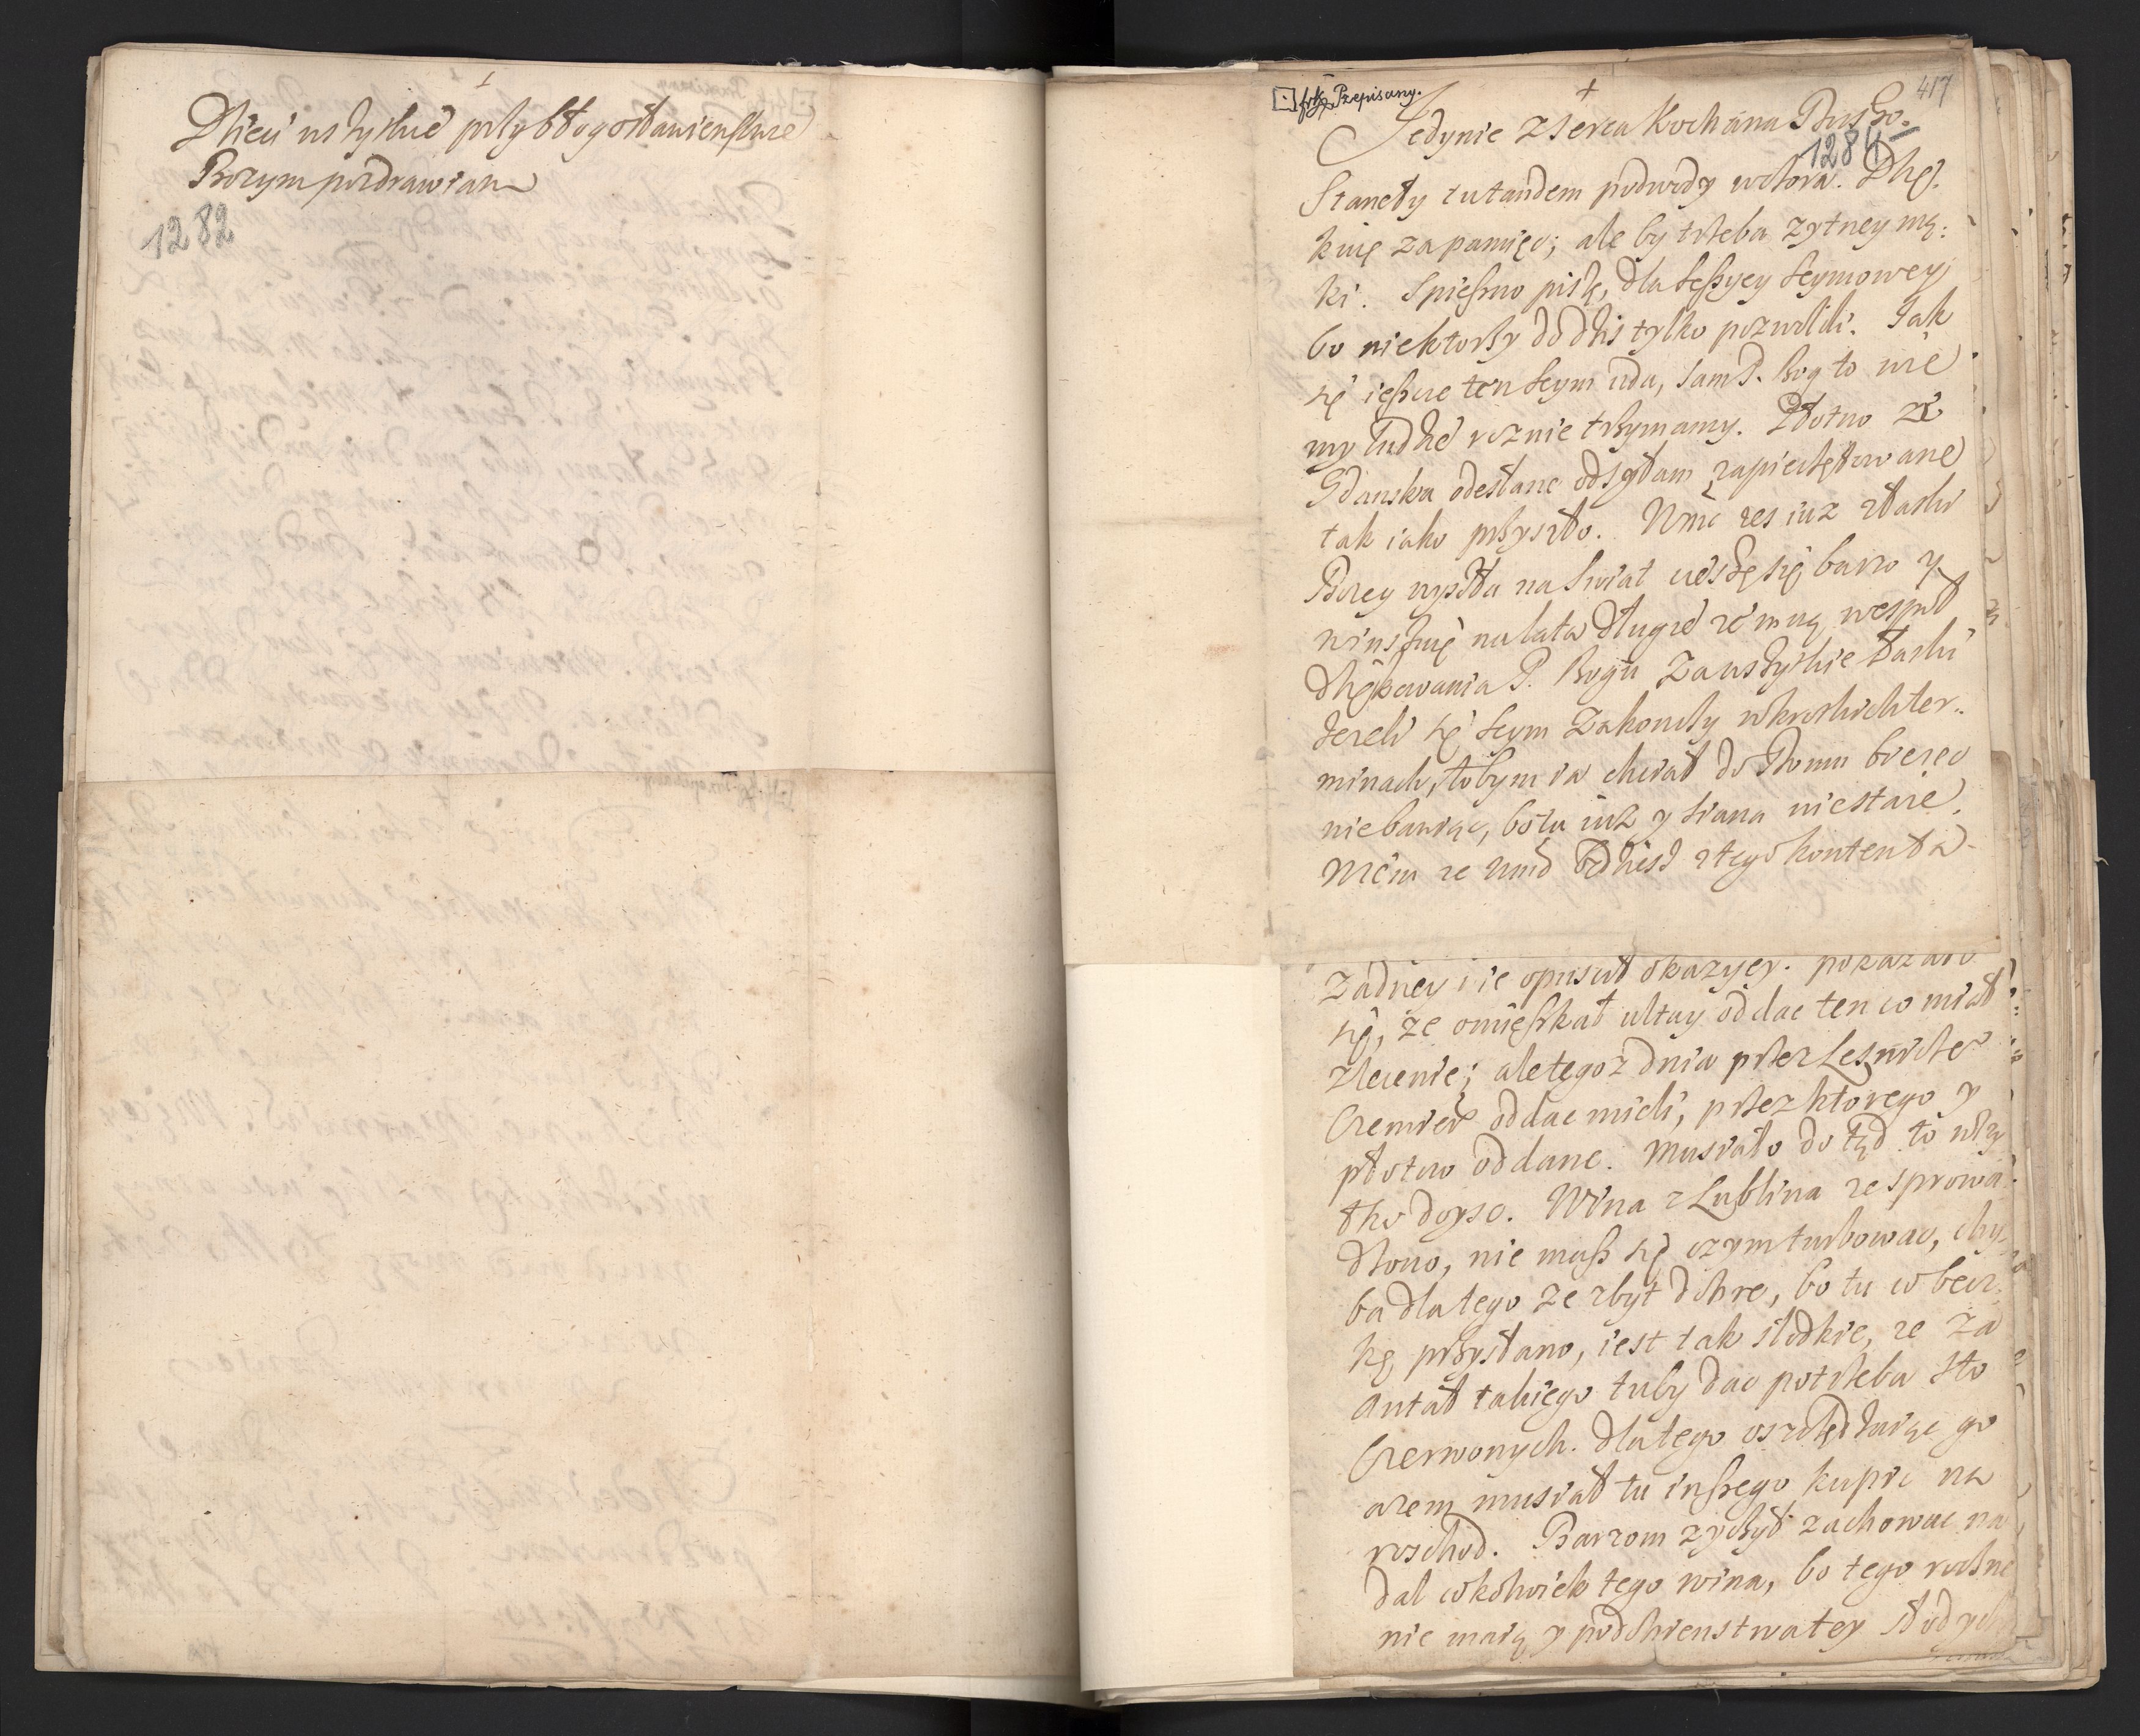 Dzieci wszytkie przy błogosławienstwie
Bozym pozdrawiam
1282
417
Przepisany.
Jedynie z serca Kochana Duszo.
1284
Stanęły tu tandem podwody wczora. Dzię:
kuię za pamięc; ale by trzeba zytney mą:
ki. Spieszno piszę, dla sessyey seymowey
bo niektorzy do dzis tylko pozwolili. Jak
się ieszcze ten seym uda, sam P. Bog to wie
my ludzie roznie trzymamy. Płotno ze
Gdanska odesłane odsyłam zapieczętowane
tak iako przyszło. Wmc zes iuz z łaski
Bozey wyszła na swiat cieszę się barzo y
winszuię na lata długie ze mną wespoł
dziękowania P. Bogu za wszytkie łaski
Jezeli się seym zakonczy w krotkich ter:
minach, tobym ia chciał do Domu biezec
nie bawiąc, bo tu iuz y siana niestaie.
Wiem ze Wmc będziesz z tego kontenta
zadney nie opuscił okazyey. pokazało
się, ze omięszkał ultay oddac ten co miał
zlecenie; ale tegoz dnia przez Lesnicze
Czemier oddac mieli, przez ktorego y
płotno oddane. Musiało do tąd to wszy
tko doysc. Wina z Lublina ze sprowa:
dzono, nie masz się czym turbowac, chy:
ba dla tego ze zbyt dobre, bo tu co becz:
kę przysłano, iest tak słodkie, ze za
antał takiego tu by dac potrzeba sto
Czerwonych. dla tego oszczędzaiąc go
azem musiał tu inszego kupic na
roschod. Barzom zyczył zachowac na
dal cokolwiek tego wina, bo tego roczne
nie maią y podobienstwa tey słodyczy